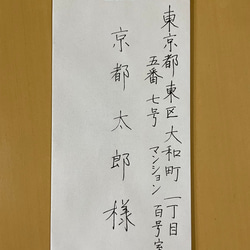 東京都東区大和町一丁目
五番七号 マンション百号室
京都太郎様